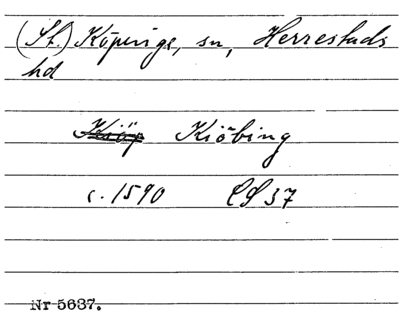 (St.) Köpinge, sn, Herrestads
hd
Kiöbing
c. 1590 CS 37
Nr 5637.